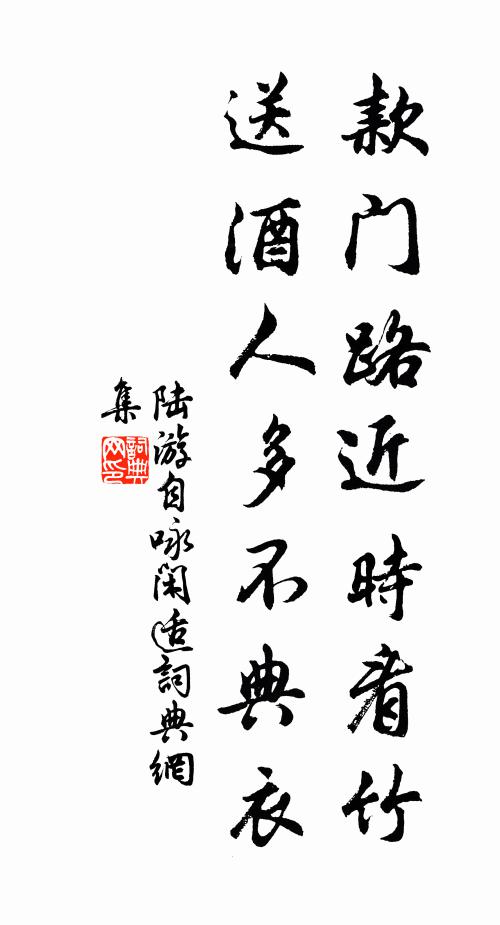 款门路近時看竹
送酒人多不典衣
陆游自咏闲适詞典網
集
詞典
网印